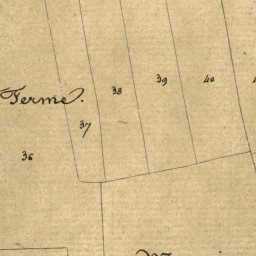 38 39 40
Ferme.
37
36